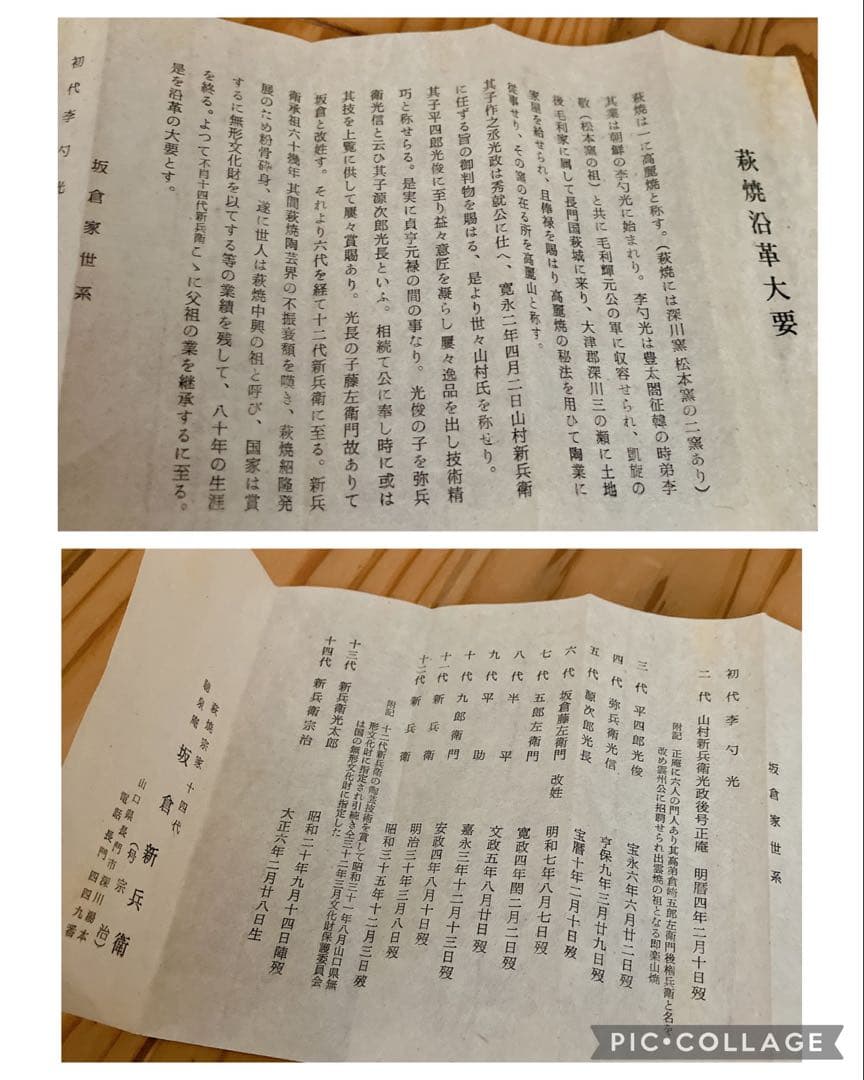 萩焼沿革大要
萩焼は一に高麗焼と称す。(萩焼には深川窯 松本窯の二窯あり)
其業は朝鮮の李勺光に始まれり。李勺光は豊太閤征韓の時弟李
敬(松本窯の祖)と共に毛利輝元公の軍に収容せられ、凱旋の
後毛利家に属して長門国萩城に来り、大津郡深川三の瀬に土地
家屋を給せられ、且俸禄を賜はり高麗焼の秘法を用ひて陶業に
従事せり、その窯の在る所を高麗山と称す。
其子作之丞光政は秀就公に仕へ、寛永二年四月二日山村新兵衛
に任ずる旨の御判物を賜はる、是より世々山村氏を称せり。
其子平四郎光俊に至り益々意匠を凝らし屡々逸品を出し技術精
巧と称せらる。是実に貞亨元禄の間の事なり。光俊の子を弥兵
衛光信と云ひ其子源次郎光長といふ。相続て公に奉し時に或は
其技を上覧に供して屡々賞賜あり。光長の子藤左衛門故ありて
坂倉と改姓す。それより六代を経て十二代新兵衛に至る。新兵
衛承祖六十幾年其間萩焼陶芸界の不振衰頽を嘆き、萩焼紹隆発
展のため粉骨砕身、遂に世人は萩焼中興の祖と呼び、国家は賞
するに無形文化財を以てする等の業績を残して、八十年の生涯
を終る。よつて不肖十四代新兵衛こゝに父祖の業を継承するに至る。
是を沿革の大要とす。
坂倉家世系
初代李勺光
坂倉家世系
初代李勺光
二代 山村新兵衛光政後号正庵 明暦四年二月十日歿
附記 正庵に六人の門人あり其高弟倉崎五郎左衛門後権兵衛と名を
改め雲州公に招聘せられ出雲焼の祖となる即楽山焼
三代 平四郎光俊 宝永六年六月廿二日歿
四代 弥兵衛光信 亨保九年三月廿九日歿
五代 源次郎光長 宝暦十年二月十日歿
六代 坂倉藤左衛門 改姓 明和七年八月七日歿
七代 五郎左衛門 寛政四年閏二月二日歿
八代 半平 文政五年八月廿日歿
九代 平助 嘉永三年十二月十三日歿
十代 九郎衛門 安政四年八月十日歿
十一代 新兵衛 明治三十年三月八日歿
十二代 新兵衛 昭和三十五年十二月三日歿
附記 十二代新兵衛の陶芸技術を賞して昭和三十一年八月山口県無
形文化財に指定され引続き仝三十二年三月文化財保護委員会
は国の無形文化財に指定した
十三代 新兵衛光太郎 昭和二十年九月十四日陣歿
十四代 新兵衛宗治 大正六年二月廿八日生
萩焼宗家 十四代
坂倉新兵衛
(号 宗治)
山口県長門市深川湯本
電話長門四四九番
PIC•COLLAGE